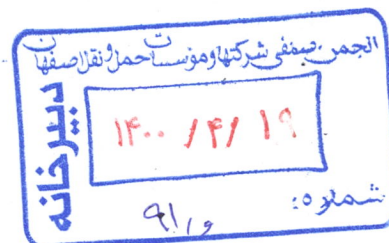 انجمن صنفی شرکتها و مؤسسات حمل و نقل اصفهان
دبیرخانه
۱۴۰۰ /۴/ ۱۹
شماره: